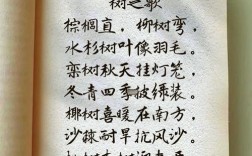 树之歌
棕榈直，柳树弯，
水杉树叶像羽毛。
栾树秋天挂灯笼，
冬青四季披绿装。
椰树喜暖在南方，
沙棘耐旱抗风沙。